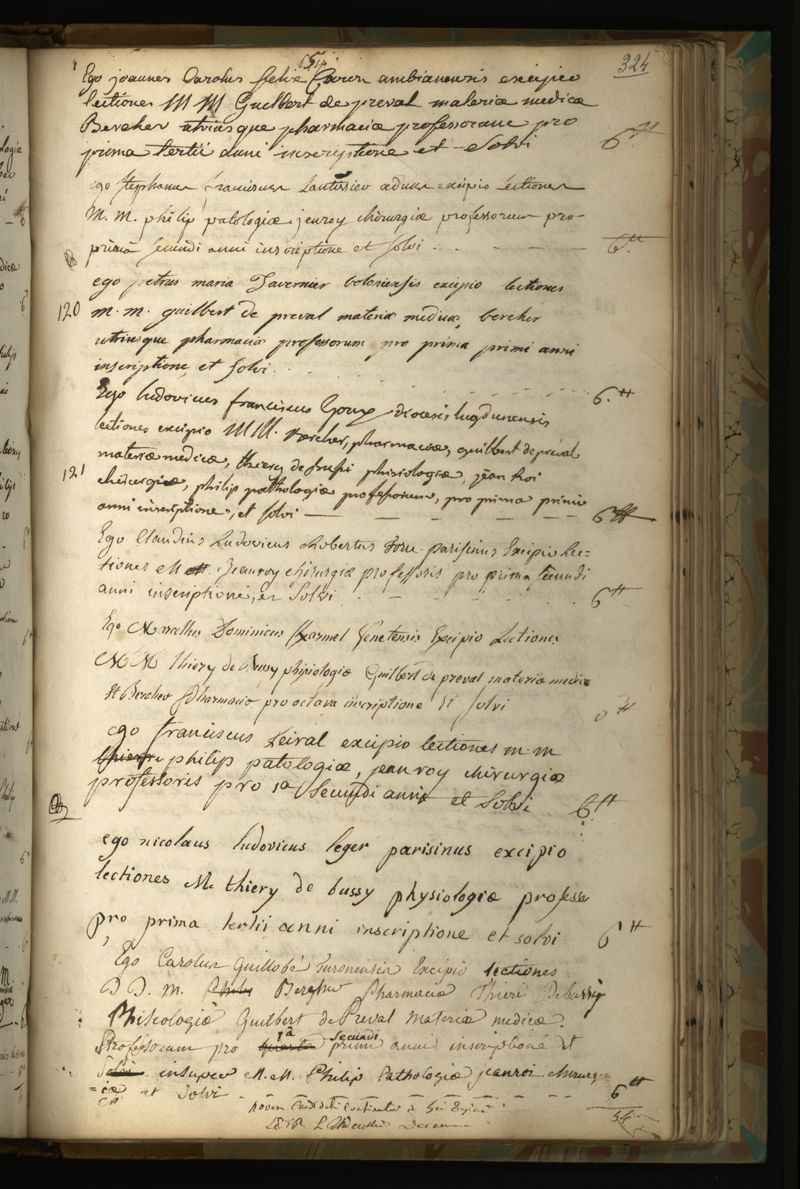 324
Ego joannes Carolus felix Caron ambianensis excipio
lectiones MM Guilbert de preval materiæ medicæ
Bercher utriusque pharmaciæ professorum pro
prima tertii anni inscriptione et Solvi 6tt
ego Stephanus franciscus excipio lectiones
M. M. philip patologiæ jeuroy chirurgiæ professorum pro-
prima secundi anni inscriptione et solvi 6tt
ego petrus maria Tavernier boloniensis excipio lectiones
120 m. m. guilbert de preval materiæ medicæ, bercher
utriusque pharmaciæ professorum pro prima primi anni
inscriptione et solvi 6.tt
Ego ludovicus franciscus Goux diocesis lugdunensis
lectiones excipio MM. Bercher, pharmaciæ, guilbert de préval
materiæ medicæ, thiery de physiologiæ, jean roi
121 chirurgiæ, philip pathologiæ professorum, pro prima primi
anni inscriptione, et solvi 6tt
Ego Claudius Ludovicus Robertus parisinus Excipio Lec=
tiones M Jeanroy chirurgiæ professoris pro prima secundi
anni inscriptione, et Solvi 6tt
Ego Marcellus Dominicus Excipio Lectiones
M M Thiery de Bussy physiologiæ Guilbert de preval materiæ medicæ
et Bercher Pharmaciæ pro octava inscriptione et solvi 6tt
ego franciscus Leiral excipio lectiones m. m
thierri philip patologiæ, jeanroy chirurgiæ
professoris pro 1a secundi anni et solvi 6tt
ego nicolaus ludovicus leger parisinus excipio
lectiones M. thiery de bussy physiologiæ professor
pro prima tertii anni inscriptione et solvi 6tt
Ego Carolus Guillobé Turonensis Excipio lectiones
D D. M. Philip Bercher Pharmaciæ Thieri Debussy
Phisiologiæ Guilbert de Preval Materiæ medicæ
Professorum pro quarta 1a primi secundi anni inscriptione et
Solvi insuper M. M. Philip Pathologiæ jeanroi chirurgi
=æ et Solvi 6tt
novem Candidati
54